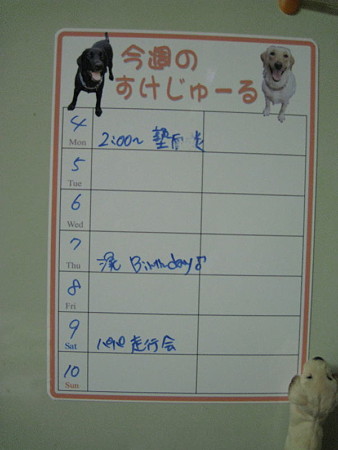 今週の
すけじゅーる
4
Mon
2:00〜
5
Tue
6
Wed
7
Thu
Birthday♪
8
Fri
9
Sat
走行会
10
Sun